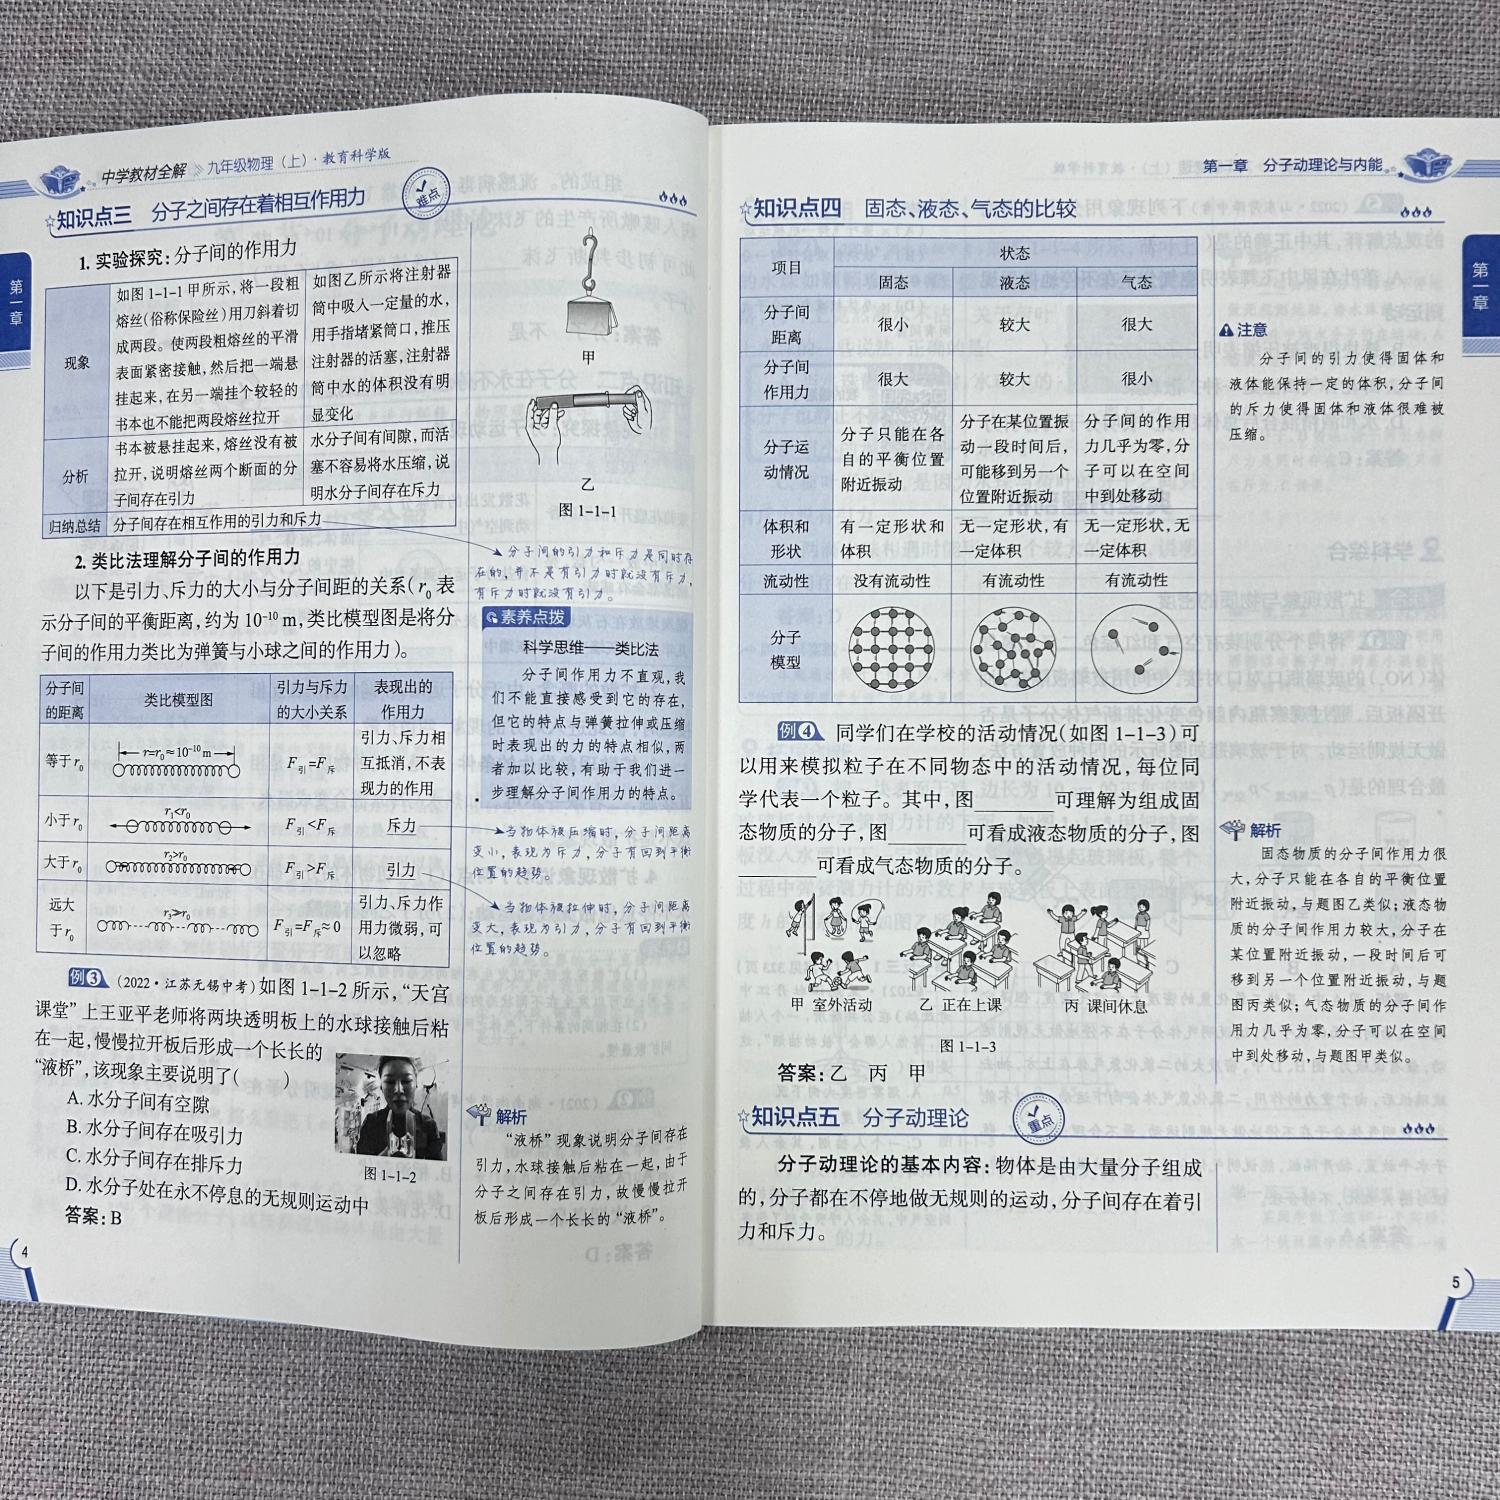 中学教材全解 九年级物理（上）·教育科学版
第一章
知识点三 分子之间存在着相互作用力
难点
1. 实验探究：分子间的作用力
现象
如图1-1-1甲所示，将一段粗
熔丝（俗称保险丝）用刀斜着切
成两段。使两段粗熔丝的平滑
表面紧密接触，然后把一端悬
挂起来，在另一端挂个较轻的
书本也不能把两段熔丝拉开
如图乙所示将注射器
筒中吸入一定量的水，
用手指堵紧筒口，推压
注射器的活塞，注射器
筒中水的体积没有明
显变化
分析
书本被悬挂起来，熔丝没有被
拉开，说明熔丝两个断面的分
子间存在引力
水分子间有间隙，而活
塞不容易将水压缩，说
明水分子间存在斥力
归纳总结
分子间存在相互作用的引力和斥力
甲
乙
图1-1-1
分子间的引力和斥力是同时存
在的，并不是有引力时就没有斥力，
有斥力时就没有引力。
2. 类比法理解分子间的作用力
以下是引力、斥力的大小与分子间距的关系（r₀表
示分子间的平衡距离，约为10⁻¹⁰ m，类比模型图是将分
子间的作用力类比为弹簧与小球之间的作用力）。
分子间
的距离
类比模型图
引力与斥力
的大小关系
表现出的
作用力
等于r₀
r=r₀≈10⁻¹⁰ m
F引=F斥
引力、斥力相
互抵消，不表
现力的作用
小于r₀
r₁<r₀
F引<F斥
斥力
大于r₀
r₂>r₀
F引>F斥
引力
远大
于r₀
r₃≫r₀
F引=F斥≈0
引力、斥力作
用力微弱，可
以忽略
素养点拨
科学思维——类比法
分子间作用力不直观，我
们不能直接感受到它的存在，
但它的特点与弹簧拉伸或压缩
时表现出的力的特点相似，两
者加以比较，有助于我们进一
步理解分子间作用力的特点。
当物体被压缩时，分子间距离
变小，表现为斥力，分子有回到平衡
位置的趋势。
当物体被拉伸时，分子间距离
变大，表现为引力，分子有回到平衡
位置的趋势。
例3 （2022·江苏无锡中考）如图1-1-2所示，“天宫
课堂”上王亚平老师将两块透明板上的水球接触后粘
在一起，慢慢拉开板后形成一个长长的
“液桥”，该现象主要说明了（　　）
A. 水分子间有空隙
B. 水分子间存在吸引力
C. 水分子间存在排斥力
D. 水分子处在永不停息的无规则运动中
答案：B
图1-1-2
解析
“液桥”现象说明分子间存在
引力，水球接触后粘在一起，由于
分子之间存在引力，故慢慢拉开
板后形成一个长长的“液桥”。
4
第一章 分子动理论与内能
第一章
知识点四 固态、液态、气态的比较
项目
状态
固态
液态
气态
分子间
距离
很小
较大
很大
分子间
作用力
很大
较大
很小
分子运
动情况
分子只能在各
自的平衡位置
附近振动
分子在某位置振
动一段时间后，
可能移到另一个
位置附近振动
分子间的作用
力几乎为零，分
子可以在空间
中到处移动
体积和
形状
有一定形状和
体积
无一定形状，有
一定体积
无一定形状，无
一定体积
流动性
没有流动性
有流动性
有流动性
分子
模型
注意
分子间的引力使得固体和
液体能保持一定的体积，分子间
的斥力使得固体和液体很难被
压缩。
例4 同学们在学校的活动情况（如图1-1-3）可
以用来模拟粒子在不同物态中的活动情况，每位同
学代表一个粒子。其中，图________可理解为组成固
态物质的分子，图________可看成液态物质的分子，图
________可看成气态物质的分子。
甲 室外活动
乙 正在上课
丙 课间休息
图1-1-3
答案：乙 丙 甲
解析
固态物质的分子间作用力很
大，分子只能在各自的平衡位置
附近振动，与题图乙类似；液态物
质的分子间作用力较大，分子在
某位置附近振动，一段时间后可
移到另一个位置附近振动，与题
图丙类似；气态物质的分子间作
用力几乎为零，分子可以在空间
中到处移动，与题图甲类似。
知识点五 分子动理论
重点
分子动理论的基本内容：物体是由大量分子组成
的，分子都在不停地做无规则的运动，分子间存在着引
力和斥力。
5